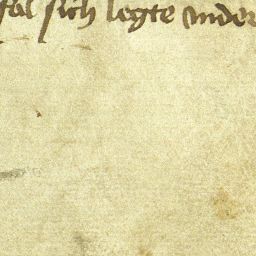 sal sich legte vnder